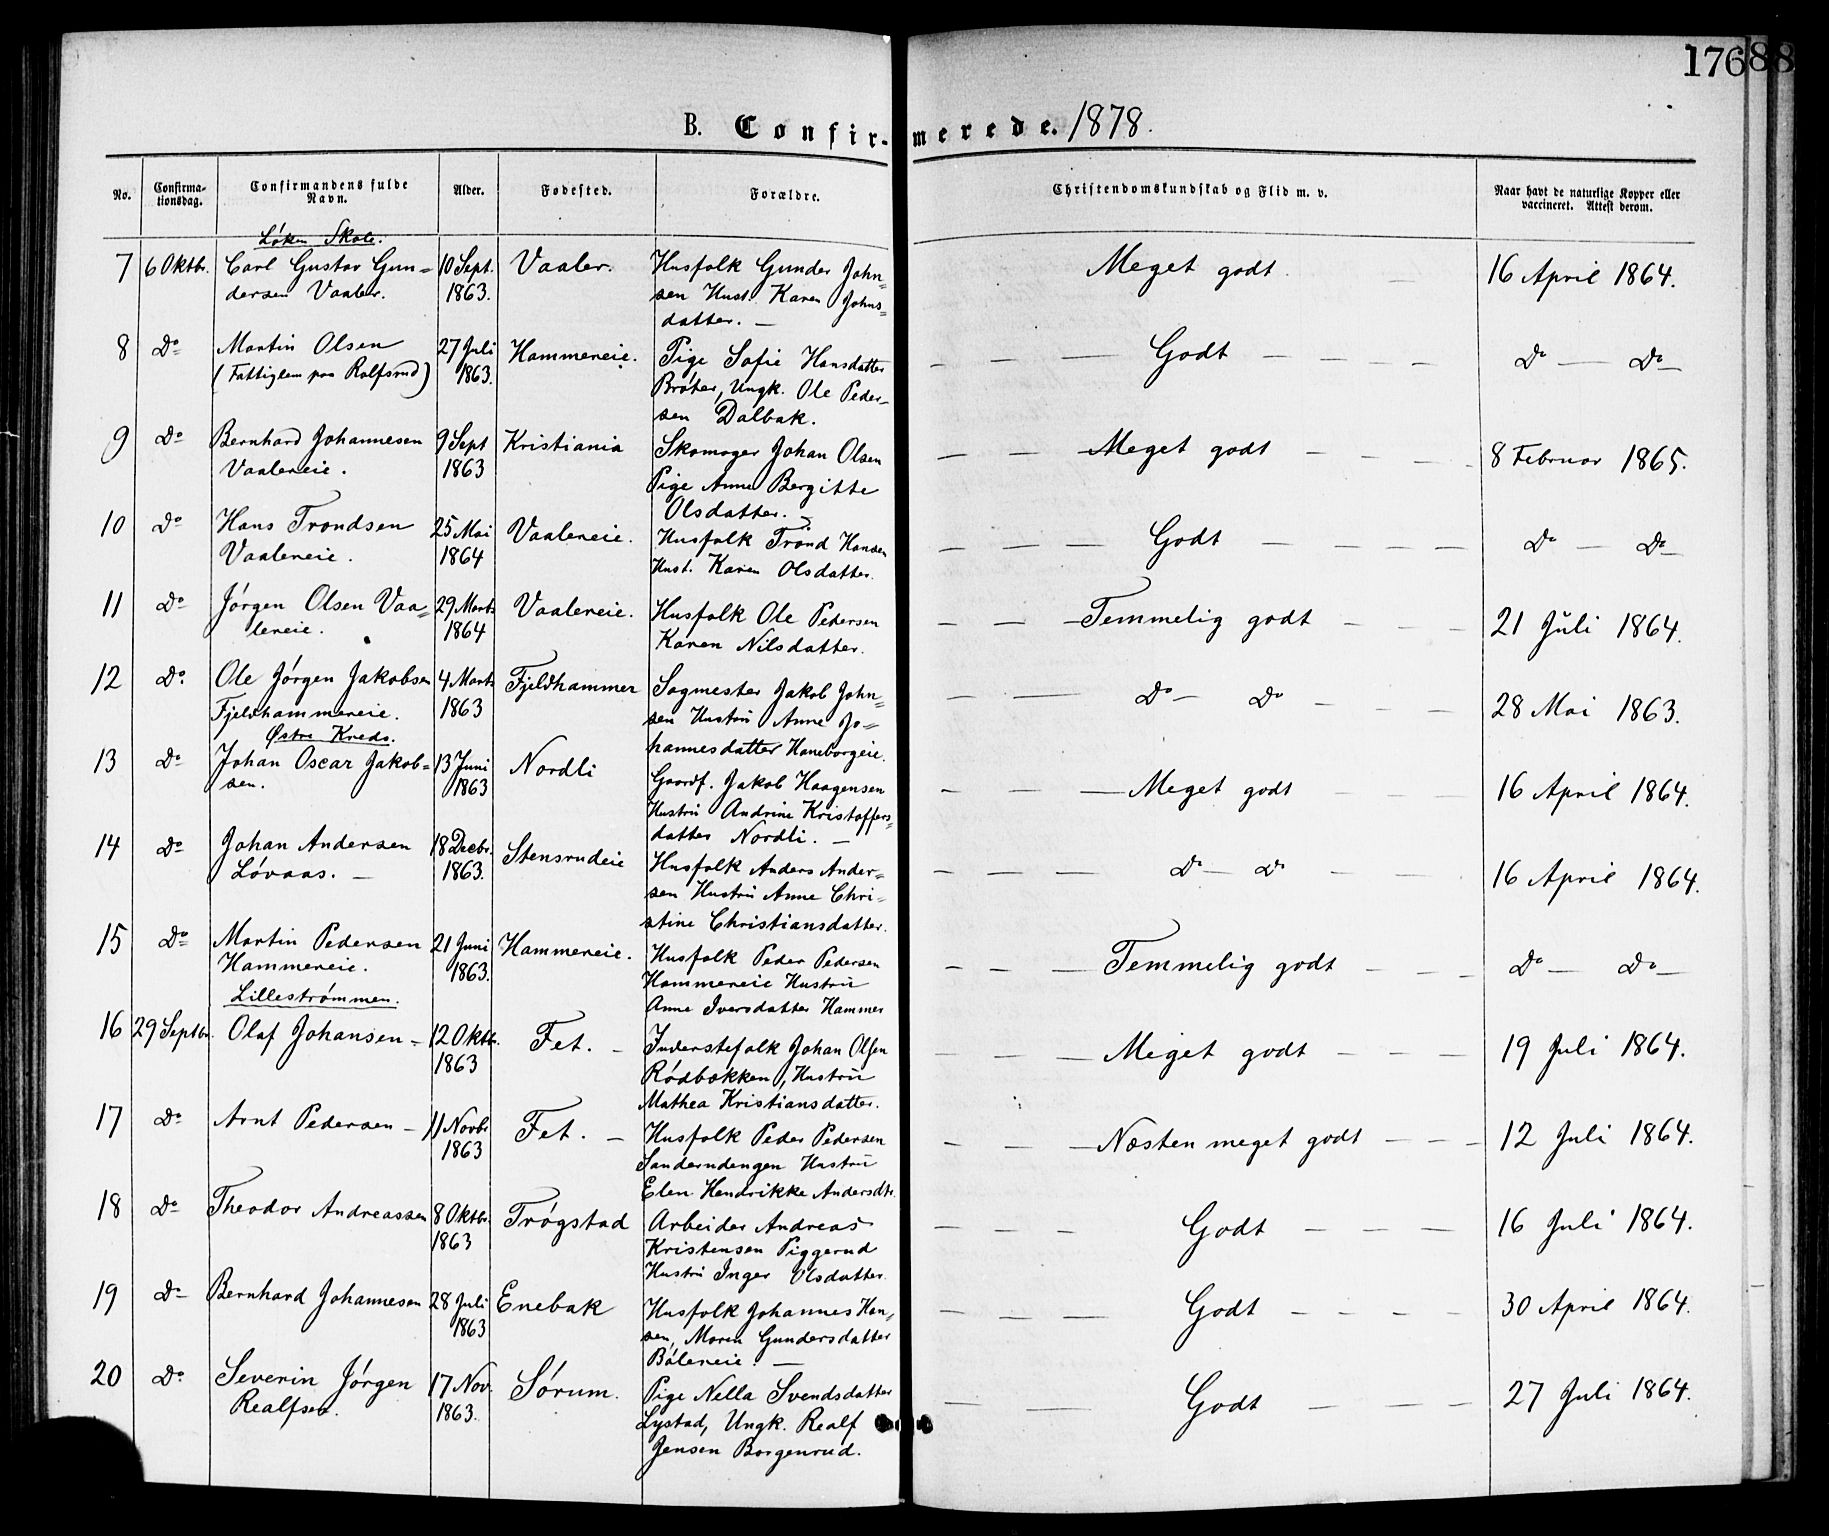 17688
B. Confir-merede. 1878.
No. Confirma-tionsdag. Confirmandens fulde Navn. Alder. Fødested. Forældre. Christendomskundskab og Flid m. v. Naar havt de naturlige Kopper eller vaccineret. Attest derom.
Løken Skole.
7 6 Oktbr. Carl Gustav Gun= 10 Sept. Vaaler. Husfolk Gunder John= Meget godt. 16 April 1864.
dersen Vaaler. 1863. sen Hust. Karen Johns=
datter. —
8 Do Martin Olsen 27 Juli Hammereie. Pige Sofie Hansdatter — — — Godt — — — Do — Do —
(Fattiglem paa Rolfsrud) 1863. Bråter, Ungk. Ole Peder-
sen Dalbak.
9 Do Bernhard Johannesen 9 Sept Kristiania Skomager Johan Olsen — — — Meget godt — — — — 8 Februar 1865.
Vaalereie. 1863 Pige Anne Bergitte
Olsdatter.
10 Do Hans Trondsen 25 Mai Vaalereie. Husfolk Trond Hansen — — — Godt — — — — Do — Do —
Vaalereie. 1864 Hust. Karen Olsdatter.
11 Do Jørgen Olsen Vaa= 29 Marts Vaalereie. Husfolk Ole Pedersen — — — Temmelig godt — — — 21 Juli 1864.
lereie. 1864 Karen Nilsdatter.
12 Do. Ole Jørgen Jakobsen 4 Marts Fjeldhammer Sagmester Jakob John= — — Do — Do — — — 28 Mai 1863.
Fjeldhammereie. 1863 sen Hustru Anne Jo=
Østre Kreds. hannesdatter Haneborgeie.
13 Do Johan Oscar Jakob= 13 Juni Nordli Gaardf. Jakob Haagensen — — — Meget godt — — — 16 April 1864.
sen. 1863 Hustru Andrine Kristoffers=
datter Nordli. —
14 Do Johan Andersen 18 Decbr. Stensrudeie Husfolk Anders Ander= — — — Do — Do — — 16 April 1864.
Løvaas. — 1863. sen Hustru Anne Chri-
stine Christiansdatter.
15 Do Martin Pedersen 21 Juni Hammereie. Husfolk Peder Pedersen — — — Temmelig godt — — — Do — Do —
Hammereie. 1863. Hammereie Hustru
Lillestrømmen. Anne Iversdatter Hammer
16 29 Septbr. Olaf Johansen - 12 Oktbr. Fet. — Inderstefolk Johan Olsen — — Meget godt — — — 19 Juli 1864.
1863 Rødbækken, Hustru
Mathea Kristiansdatter.
17 Do Arnt Pedersen — 11 Novbr Fet. — Husfolk Peder Pedersen — — — Næsten meget godt — — — 12 Juli 1864.
1863 Sanderudengen Hustru
Elen Hendrikke Andersdtr.
18 Do Theodor Andreassen 8 Oktbr. Trøgstad Arbeider Andreas — — — Godt — — — 16 Juli 1864.
1863 Kristensen Piggerud
Hustru Inger Olsdatter.
19 Do Bernhard Johannesen 28 Juli Enebak Husfolk Johannes Han, — — — Godt — — — — 30 April 1864.
1863 sen, Maren Gundersdatter
Bølereie. —
20 Do. Severin Jørgen 17 Nov. Sørum. Pige Nella Svendsdatter — — Godt — — — 27 Juli 1864.
Realfsen. 1863. Lystad, Ungk. Realf
Jensen Borgenrud.